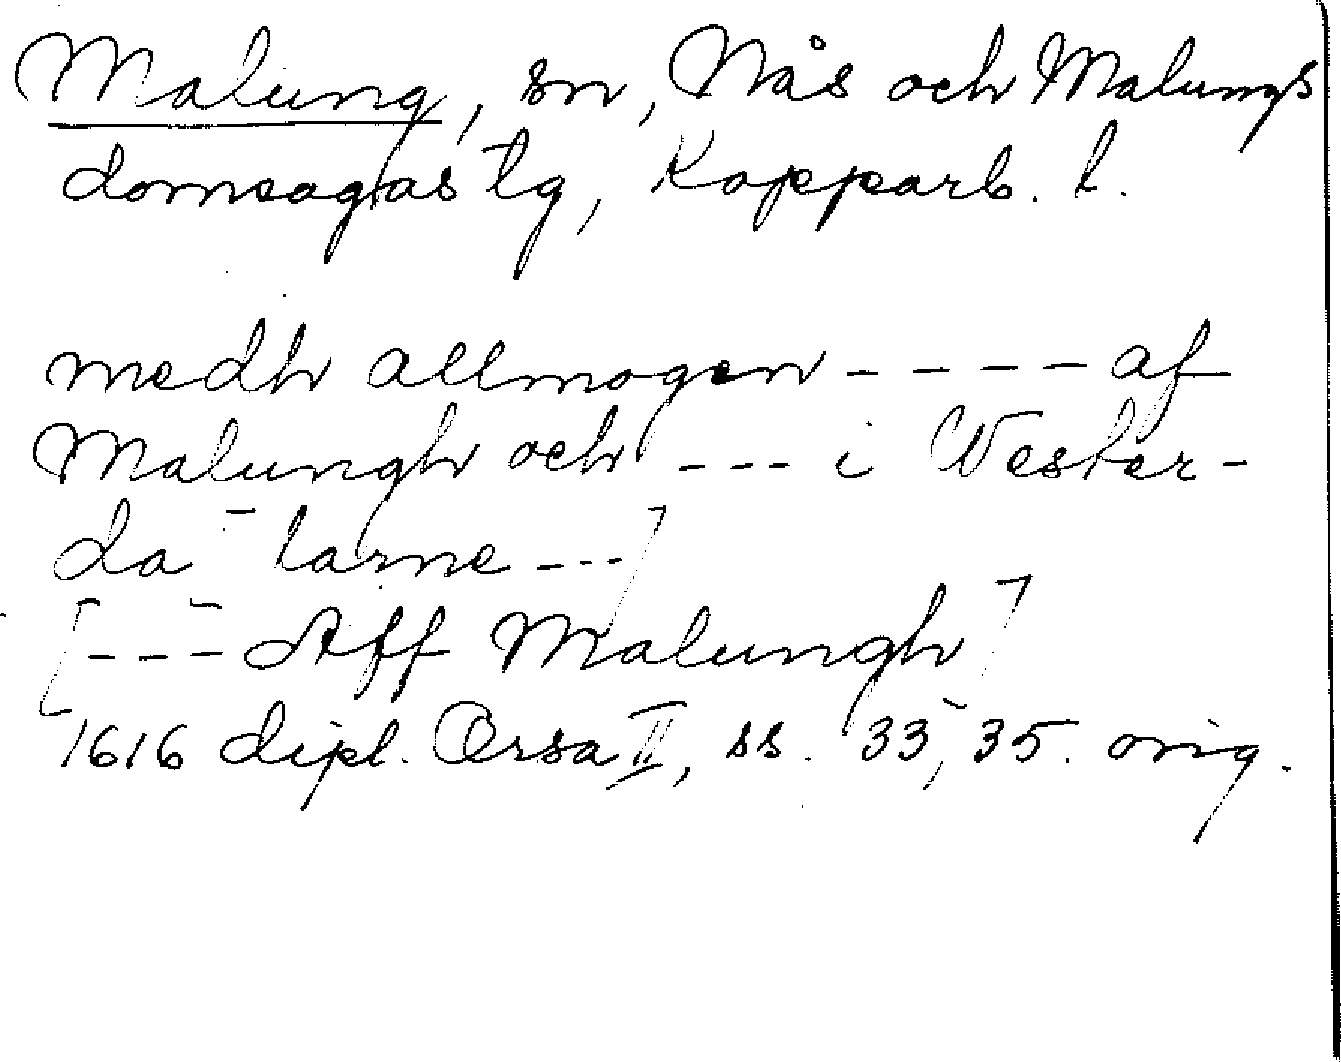 Malung, sn, Nås och Malungs
domsagas tg, Kopparb. l.
medh allmogen - - - - - af
Malungh och - - - i Wester-
da larne - - -]
[- - - Aff Malungh]
1616 dipl. Orsa II, ss. 33, 35. orig.